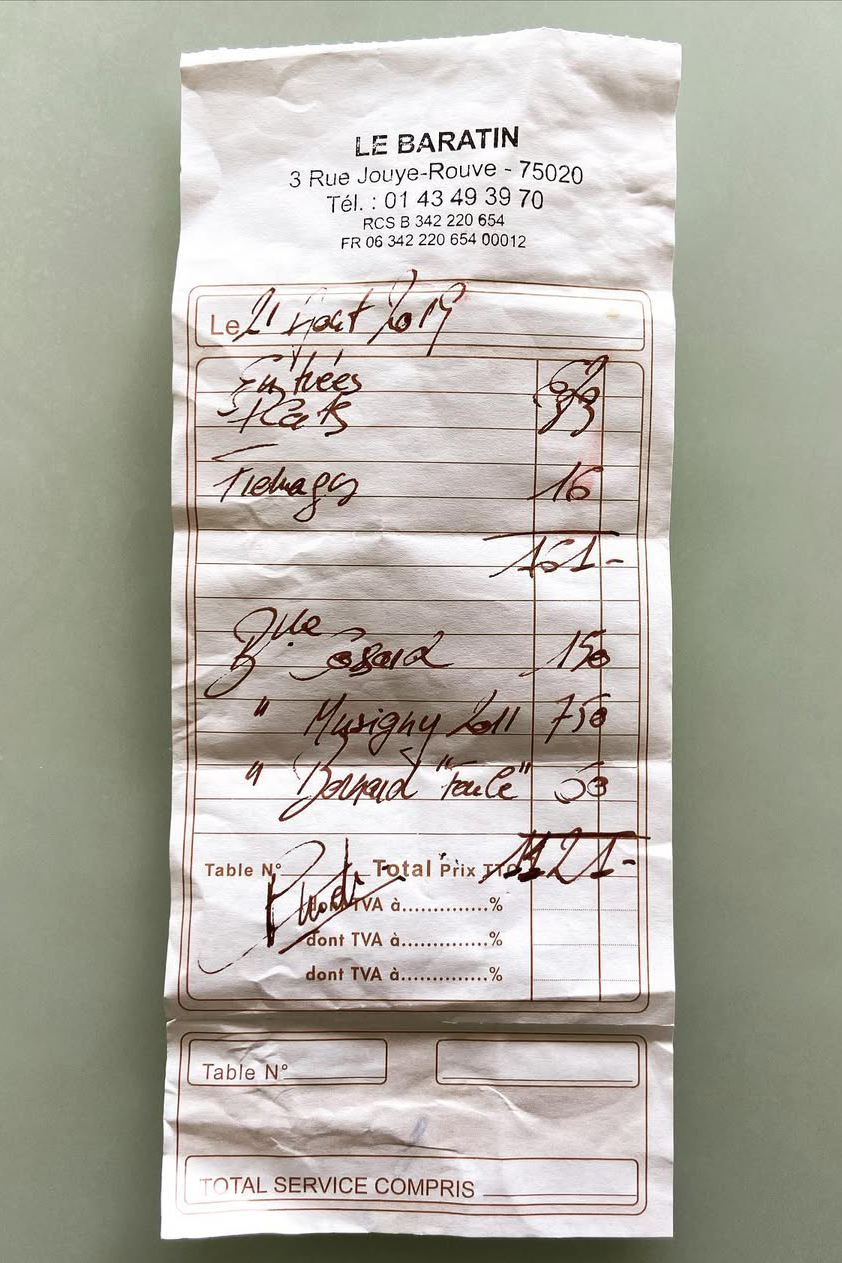 LE BARATIN
3 Rue Jouye-Rouve - 75020
Tél. : 01 43 49 39 70
RCS B 342 220 654
FR 06 342 220 654 00012
Le 21 Aout 2019
Entrées
Plats
Fromages 16
161-
Blle 150
" Musigny 2011 750
" Bornard 60
1121-
Table N° Total Prix TTC
dont TVA à.............%
dont TVA à.............%
dont TVA à.............%
Table N°
TOTAL SERVICE COMPRIS